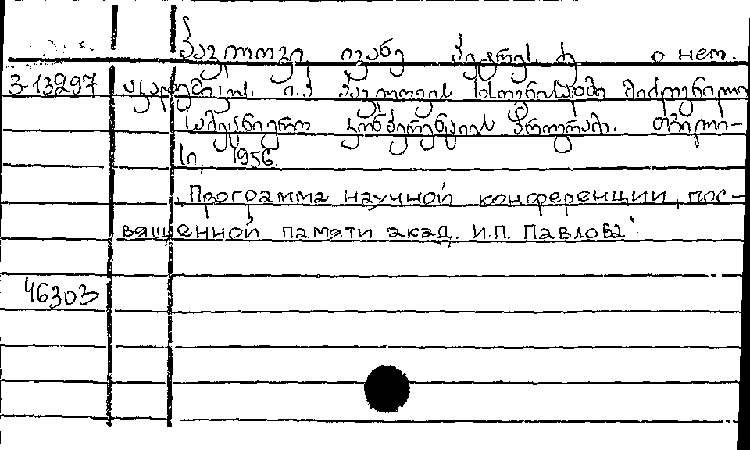 პავლოვი ივანე პეტრეს ძე о нем.
3-13297 აკადემიკოს ი.პ. პავლოვის ხსოვნისადმი მიძღვნილი
სამეცნიერო კონფერენციის პროგრამა. თბილი-
სი, 1956
„Программа научной конференции, пос-
вященной памяти акад. И.П. Павлова"
46303